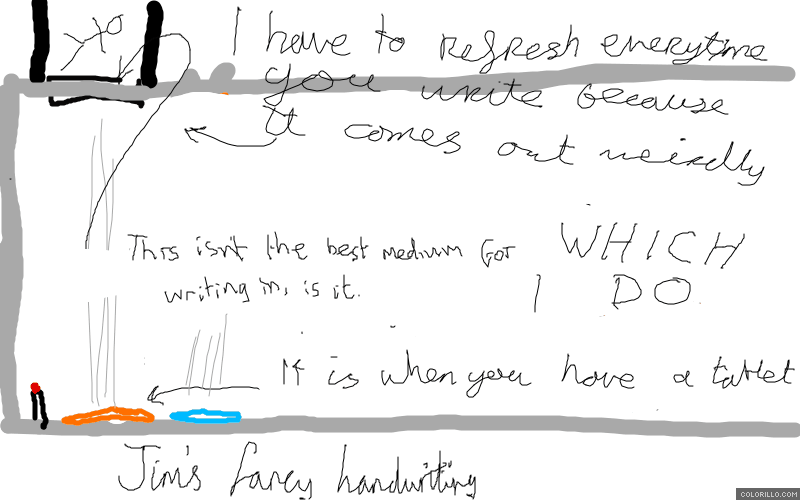 I have to refresh everytime
you write because
it comes out weirdly
This isn't the best medium for
writing in, is it.
WHICH
I DO
It is when you have a tablet
Jim's fancy handwriting
COLORILLO.COM